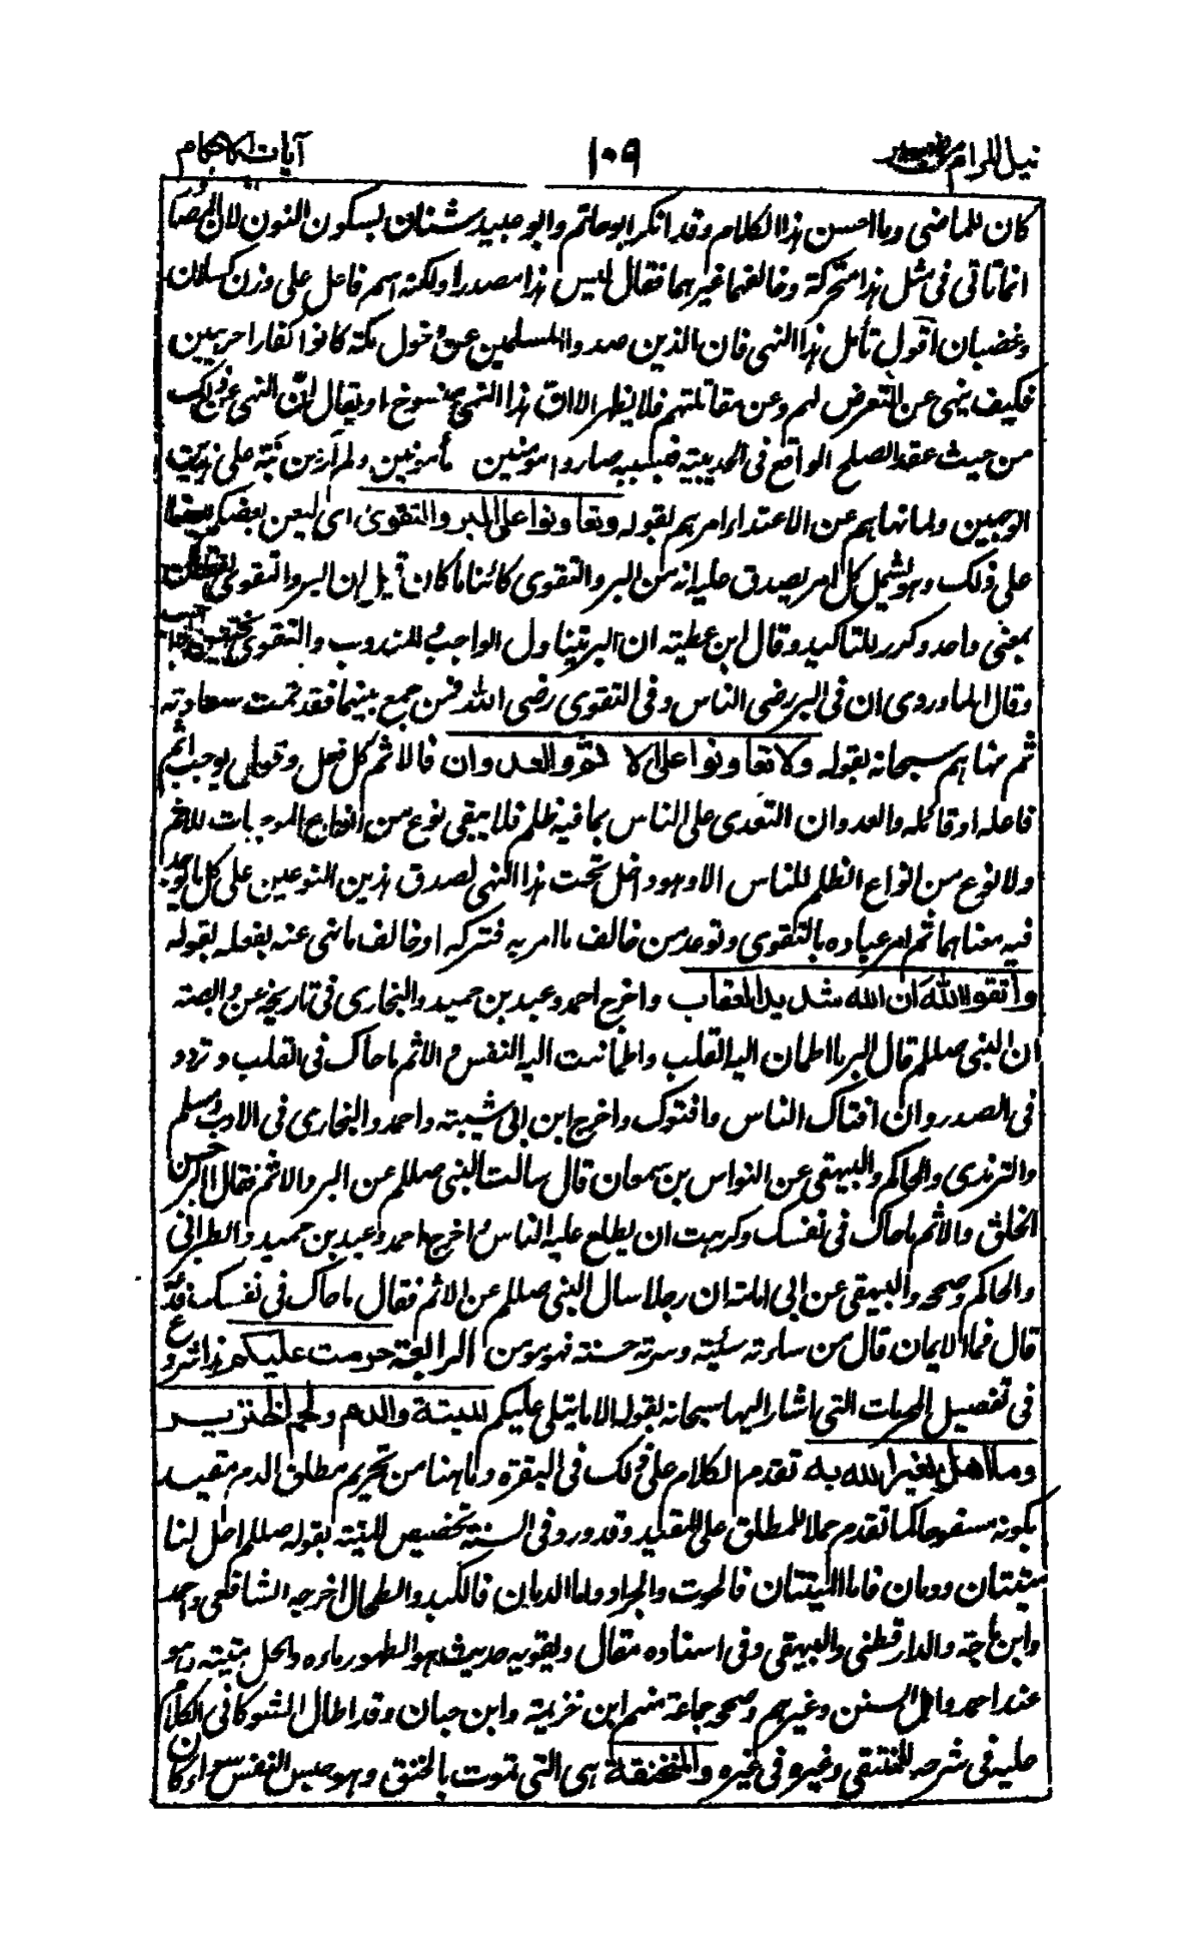 نيل المرام من تفسير
١٠٩
آيات الاحكام
كان للماضى وما احسن هذا الكلام وقد انكر ابو حاتم وابو عبيد شنان بسكون النون لان المصا
انما تاتى فى مثل هذا متحركة وخالفهما غيرهما فقال ليس هذا مصدرا ولكنه اسم فاعل على وزن كسلان
وغضبان اقول تأمل هذا النهى فان الذين صدوا المسلمين عن دخول مكة كانوا كفارا حربيين
فكيف ينهى عن التعرض لهم وعن مقاتلتهم فلا يظهر الا ان هذا النهى منسوخ او يقال ان النهى عن ذلك
من حيث عقد الصلح الواقع فى الحديبية فبسببه صاروا مؤمنين مأمونين ولم ار من نبه على هذين
الوجهين ولما نهاهم عن الاعتداء امرهم بقوله وتعاونوا على البر والتقوى اى ليعن بعضكم بعضا
على ذلك وهو يشمل كل امر يصدق عليه انه من البر والتقوى كائنا ما كان قيل ان البر والتقوى لفظان
بمعنى واحد وكرر للتاكيد وقال ابن عطية ان البر يتناول الواجب والمندوب والتقوى تختص بالواجب
وقال الماوردى ان فى البر رضى الناس وفى التقوى رضى الله فمن جمع بينهما فقد تمت سعادته
ثم نهاهم سبحانه بقوله ولا تعاونوا على الاثم والعدوان فالاثم كل فعل وقول يوجب اثم
فاعله او قائله والعدوان التعدى على الناس بما فيه ظلم فلا يبقى نوع من انواع الموجبات للاثم
ولا نوع من انواع الظلم للناس الا وهو داخل تحت هذا النهى لصدق هذين النوعين على كل ما يوجد
فيه معناهما ثم امر عباده بالتقوى وتوعد من خالف ما امر به فتركه او خالف ما نهى عنه بفعله بقوله
واتقوا الله ان الله شديد العقاب واخرج احمد وعبد بن حميد والبخارى فى تاريخه عن وابصة
ان النبى صللم قال البر ما اطمان اليه القلب واطمانت اليه النفس والاثم ما حاك فى القلب وتردد
فى الصدر وان افتاك الناس وافتوك واخرج ابن ابى شيبة واحمد والبخارى فى الادب ومسلم
والترمذى والحاكم والبيهقى عن النواس بن سمعان قال سالت النبى صللم عن البر والاثم فقال البر حسن
الخلق والاثم ما حاك فى نفسك وكرهت ان يطلع عليه الناس واخرج احمد وعبد بن حميد والطبرانى
والحاكم وصححه والبيهقى عن ابى امامة ان رجلا سال النبى صللم عن الاثم فقال ما حاك فى نفسك فدعه
قال فما الايمان قال من ساءته سيئته وسرته حسنته فهو مومن الرابعة حرمت عليكم هذا شروع
فى تفصيل المحرمات التى اشار اليها سبحانه بقوله الا ما يتلى عليكم الميتة والدم ولحم الخنزير
وما اهل لغير الله به تقدم الكلام على ذلك فى البقرة وما هنا من تحريم مطلق الدم مقيد
بكونه مسفوحا كما تقدم حملا للمطلق على المقيد وقد ورد فى السنة تخصيص الميتة بقوله صللم احل لنا
ميتتان ودمان فاما الميتتان فالحوت والجراد واما الدمان فالكبد والطحال اخرجه الشافعى واحمد
وابن ماجة والدارقطنى والبيهقى وفى اسناده مقال ويقويه حديث هو الطهور ماءه والحل ميتته وهو
عند احمد واهل السنن وغيرهم وصححه جماعة منهم ابن خزيمة وابن حبان وقد اطال الشوكانى الكلام
عليه فى شرحه للمنتقى وغيره فى غيره والمنخنقة هى التى تموت بالخنق وهو حبس النفس سواء كان